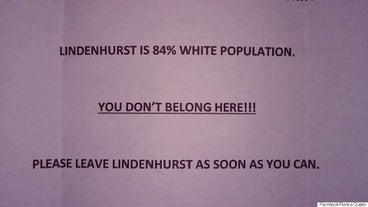 LINDENHURST IS 84% WHITE POPULATION.
YOU DON'T BELONG HERE!!!
PLEASE LEAVE LINDENHURST AS SOON AS YOU CAN.